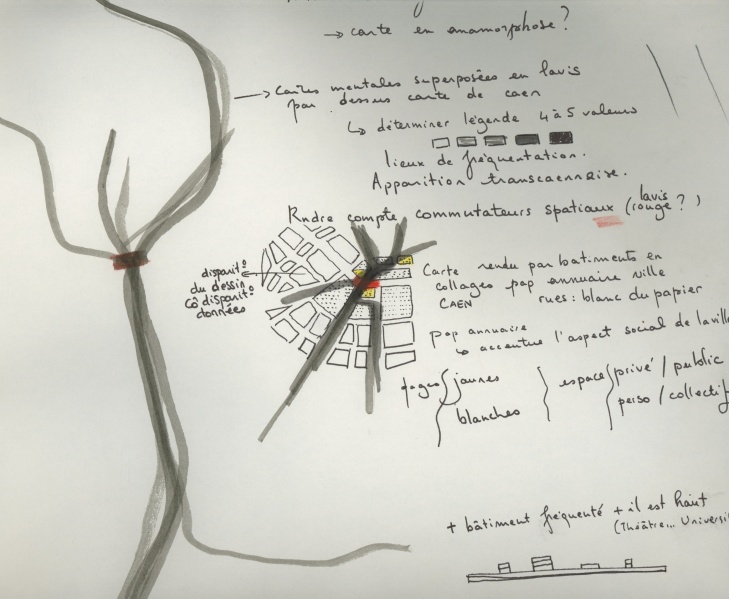 → carte en anamorphose ?
→ Cartes mentales superposées en lavis
par dessus carte de caen
↳ déterminer légende 4 à 5 valeurs
lieux de fréquentation.
Apparition transcaennaise.
Rndre compte commutateurs spatiaux (lavis rouge ?)
disparit°
du dessin
Cô disparit°
données
Carte rendu par batiments en
collages pap annuaire ville
CAEN rues : blanc du papier
pap annuaire
↳ accentue l'aspect social de la ville
pages jaunes
blanches
espace privé / public
perso / collectif
+ bâtiment fréquenté + il est haut
(Théâtre... Universi